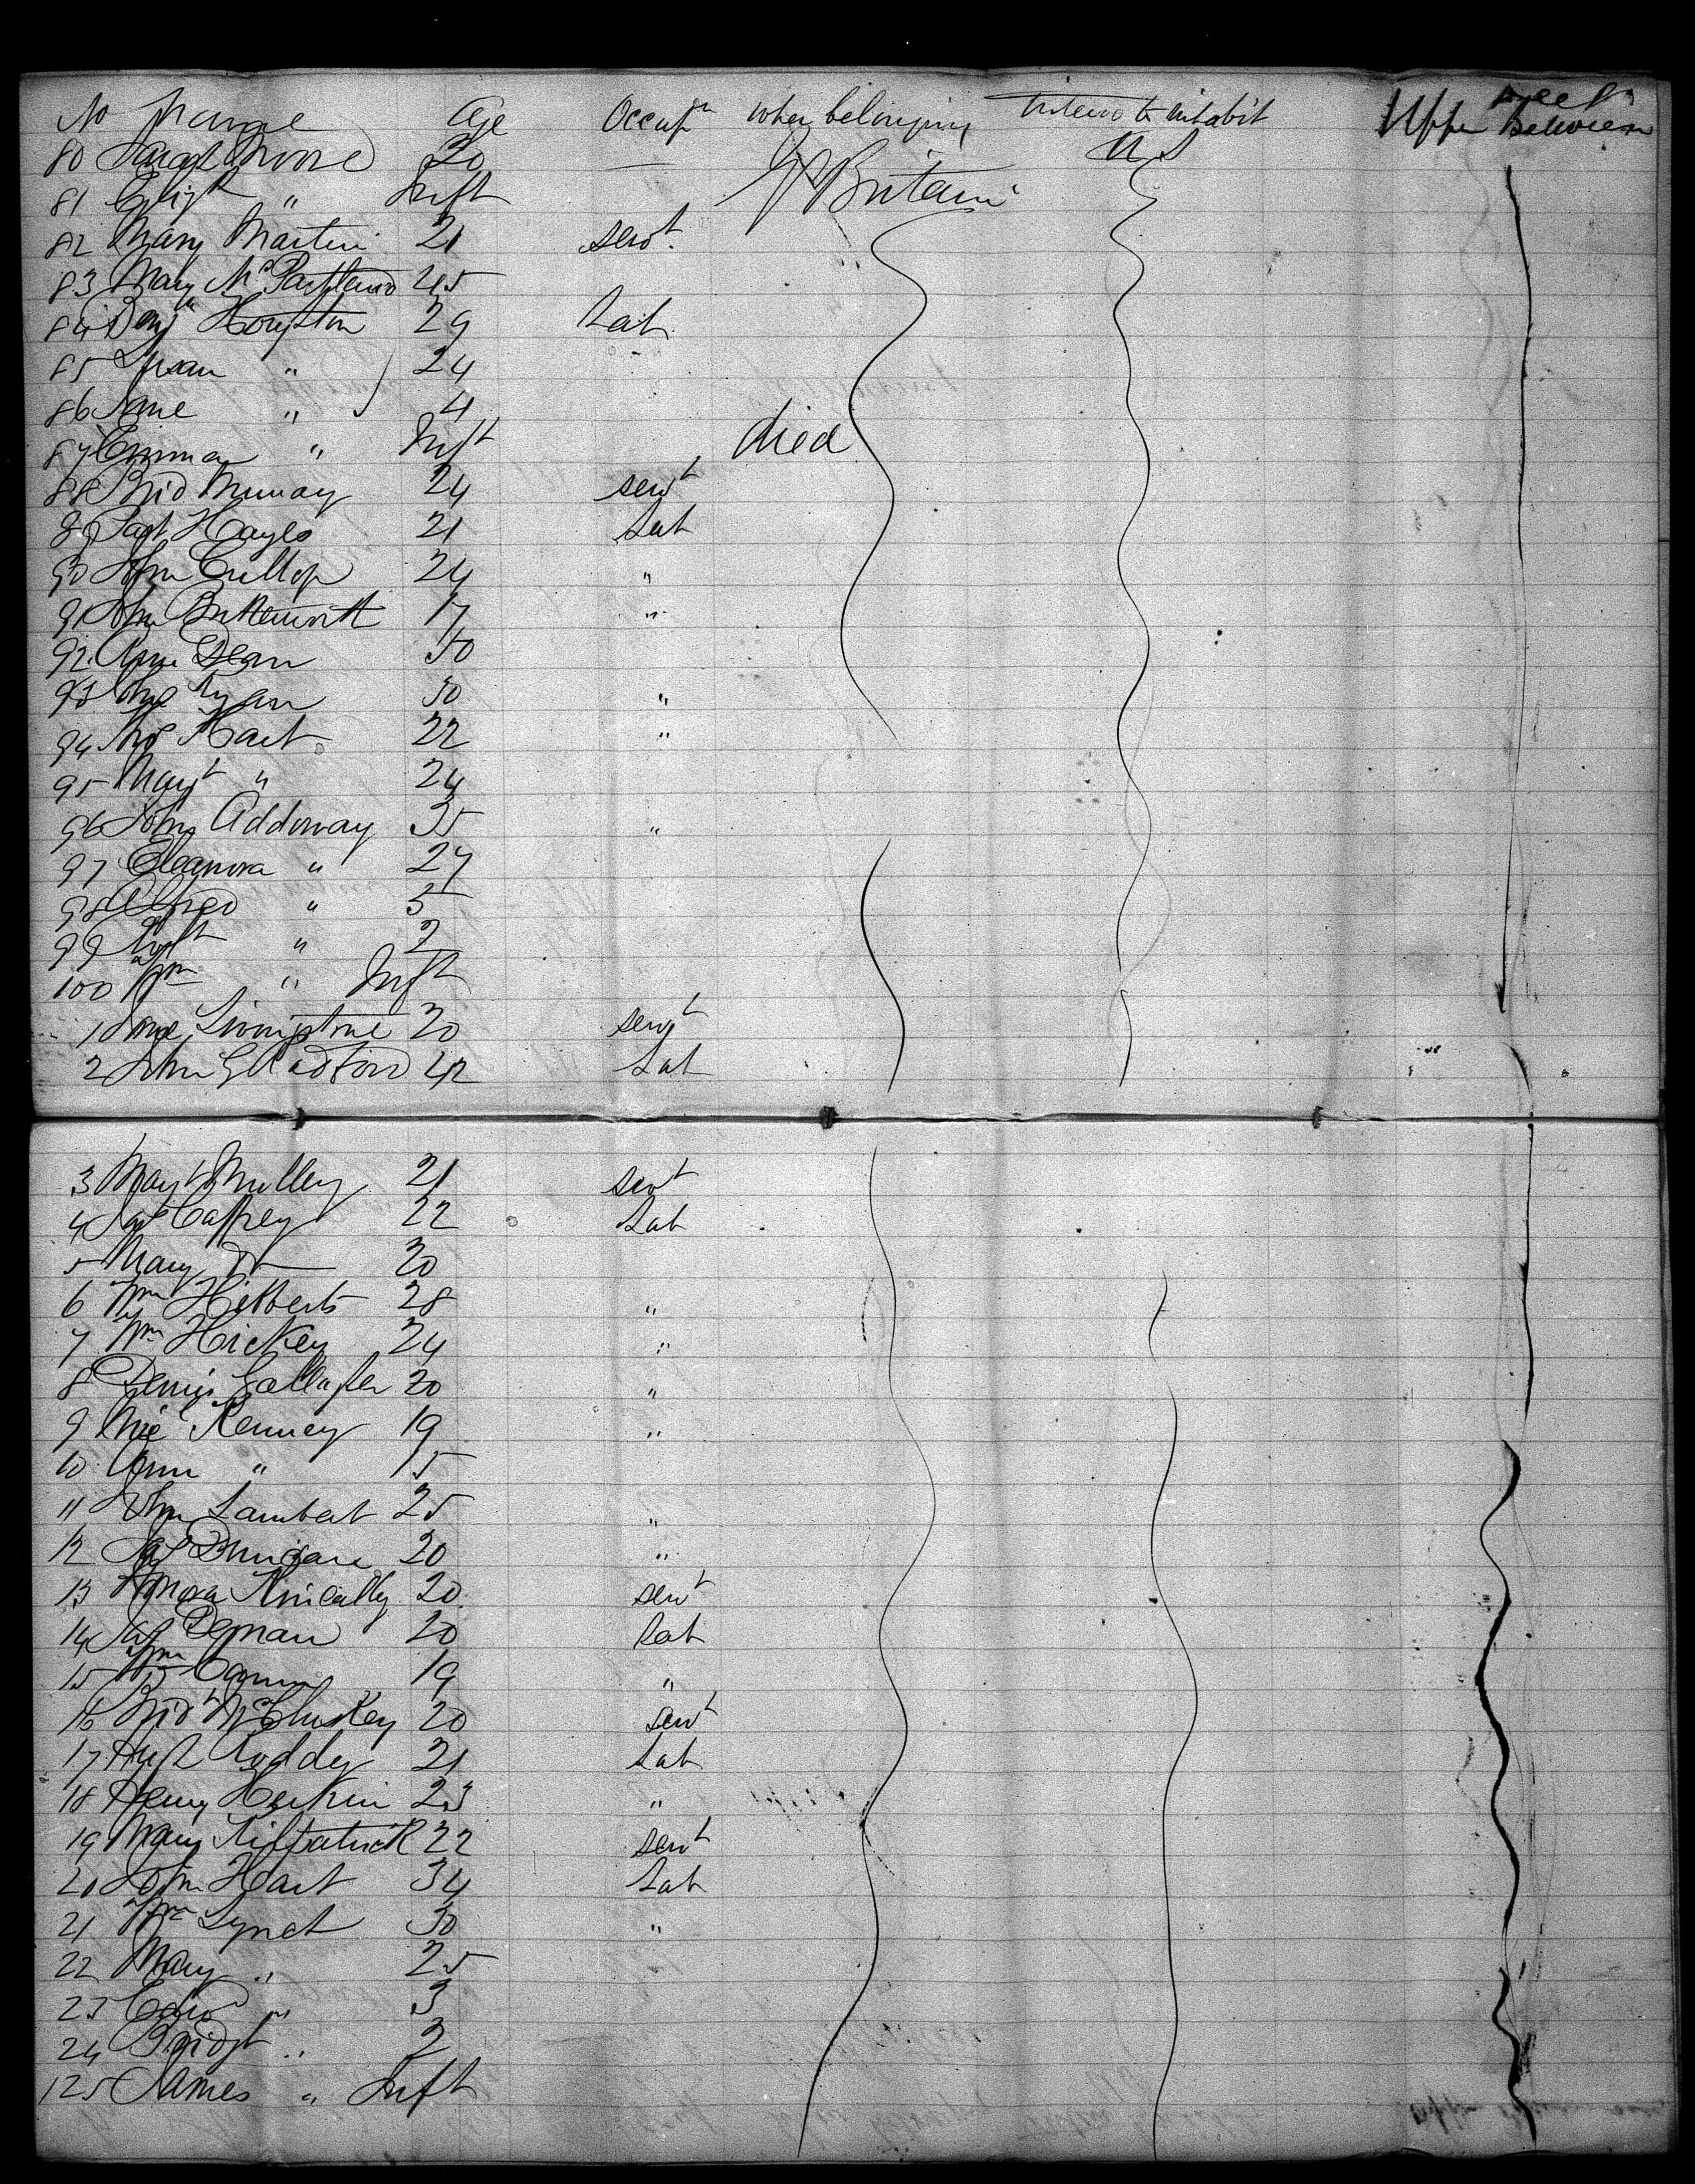 No Name Age Occupn when belonging Intend to inhabit Upper Between Deck
80 Margt Moore 30 — Gt Britain U S
81 Elizth " Inft
82 Mary Martin 21 servt
83 Mary McPartland 45
84 Benjn Houghton 29 Lab
85 Susan " 24
86 Jane " 4
87 Emma " Inft died
88 Brid Murray 24 servt
89 Patt Hayes 21 Lab
90 John Cullop 24 "
91 John Butterworth 17 "
92 Ann Dean 50
93 Ryan 30 "
94 Thos Hart 22 "
95 Margt " 24
96 John Addoway 35 "
97 Eleanora " 27
98 Alfred " 5
99 Robt " 2
100 Wm " Inft
1 Jane Livingstone 20 servt
2 John Gladford 42 Lab
3 Margt Mulley 21 servt
4 Jas Caffrey 22 Lab
5 Mary Do 20
6 Wm Hibberts 28 "
7 Wm Hickey 24 "
8 Dennis Gallagher 20 "
9 Mic Kenney 19 "
10 Ann " 15
11 John Lambert 25 "
12 Jas 20 "
13 Honora 20 servt
14 Jas 20 Lab
15 Wm 19 "
16 Bridt McCluskey 20 servt
17 Hugh Roddey 21 Lab
18 Henry Herkin 23 "
19 Mary Kilpatrick 22 servt
20 John Hart 34 Lab
21 Wm Lynch 30 "
22 Mary " 25
23 Edwd " 3
24 Bridgt " 2
125 James " Inft